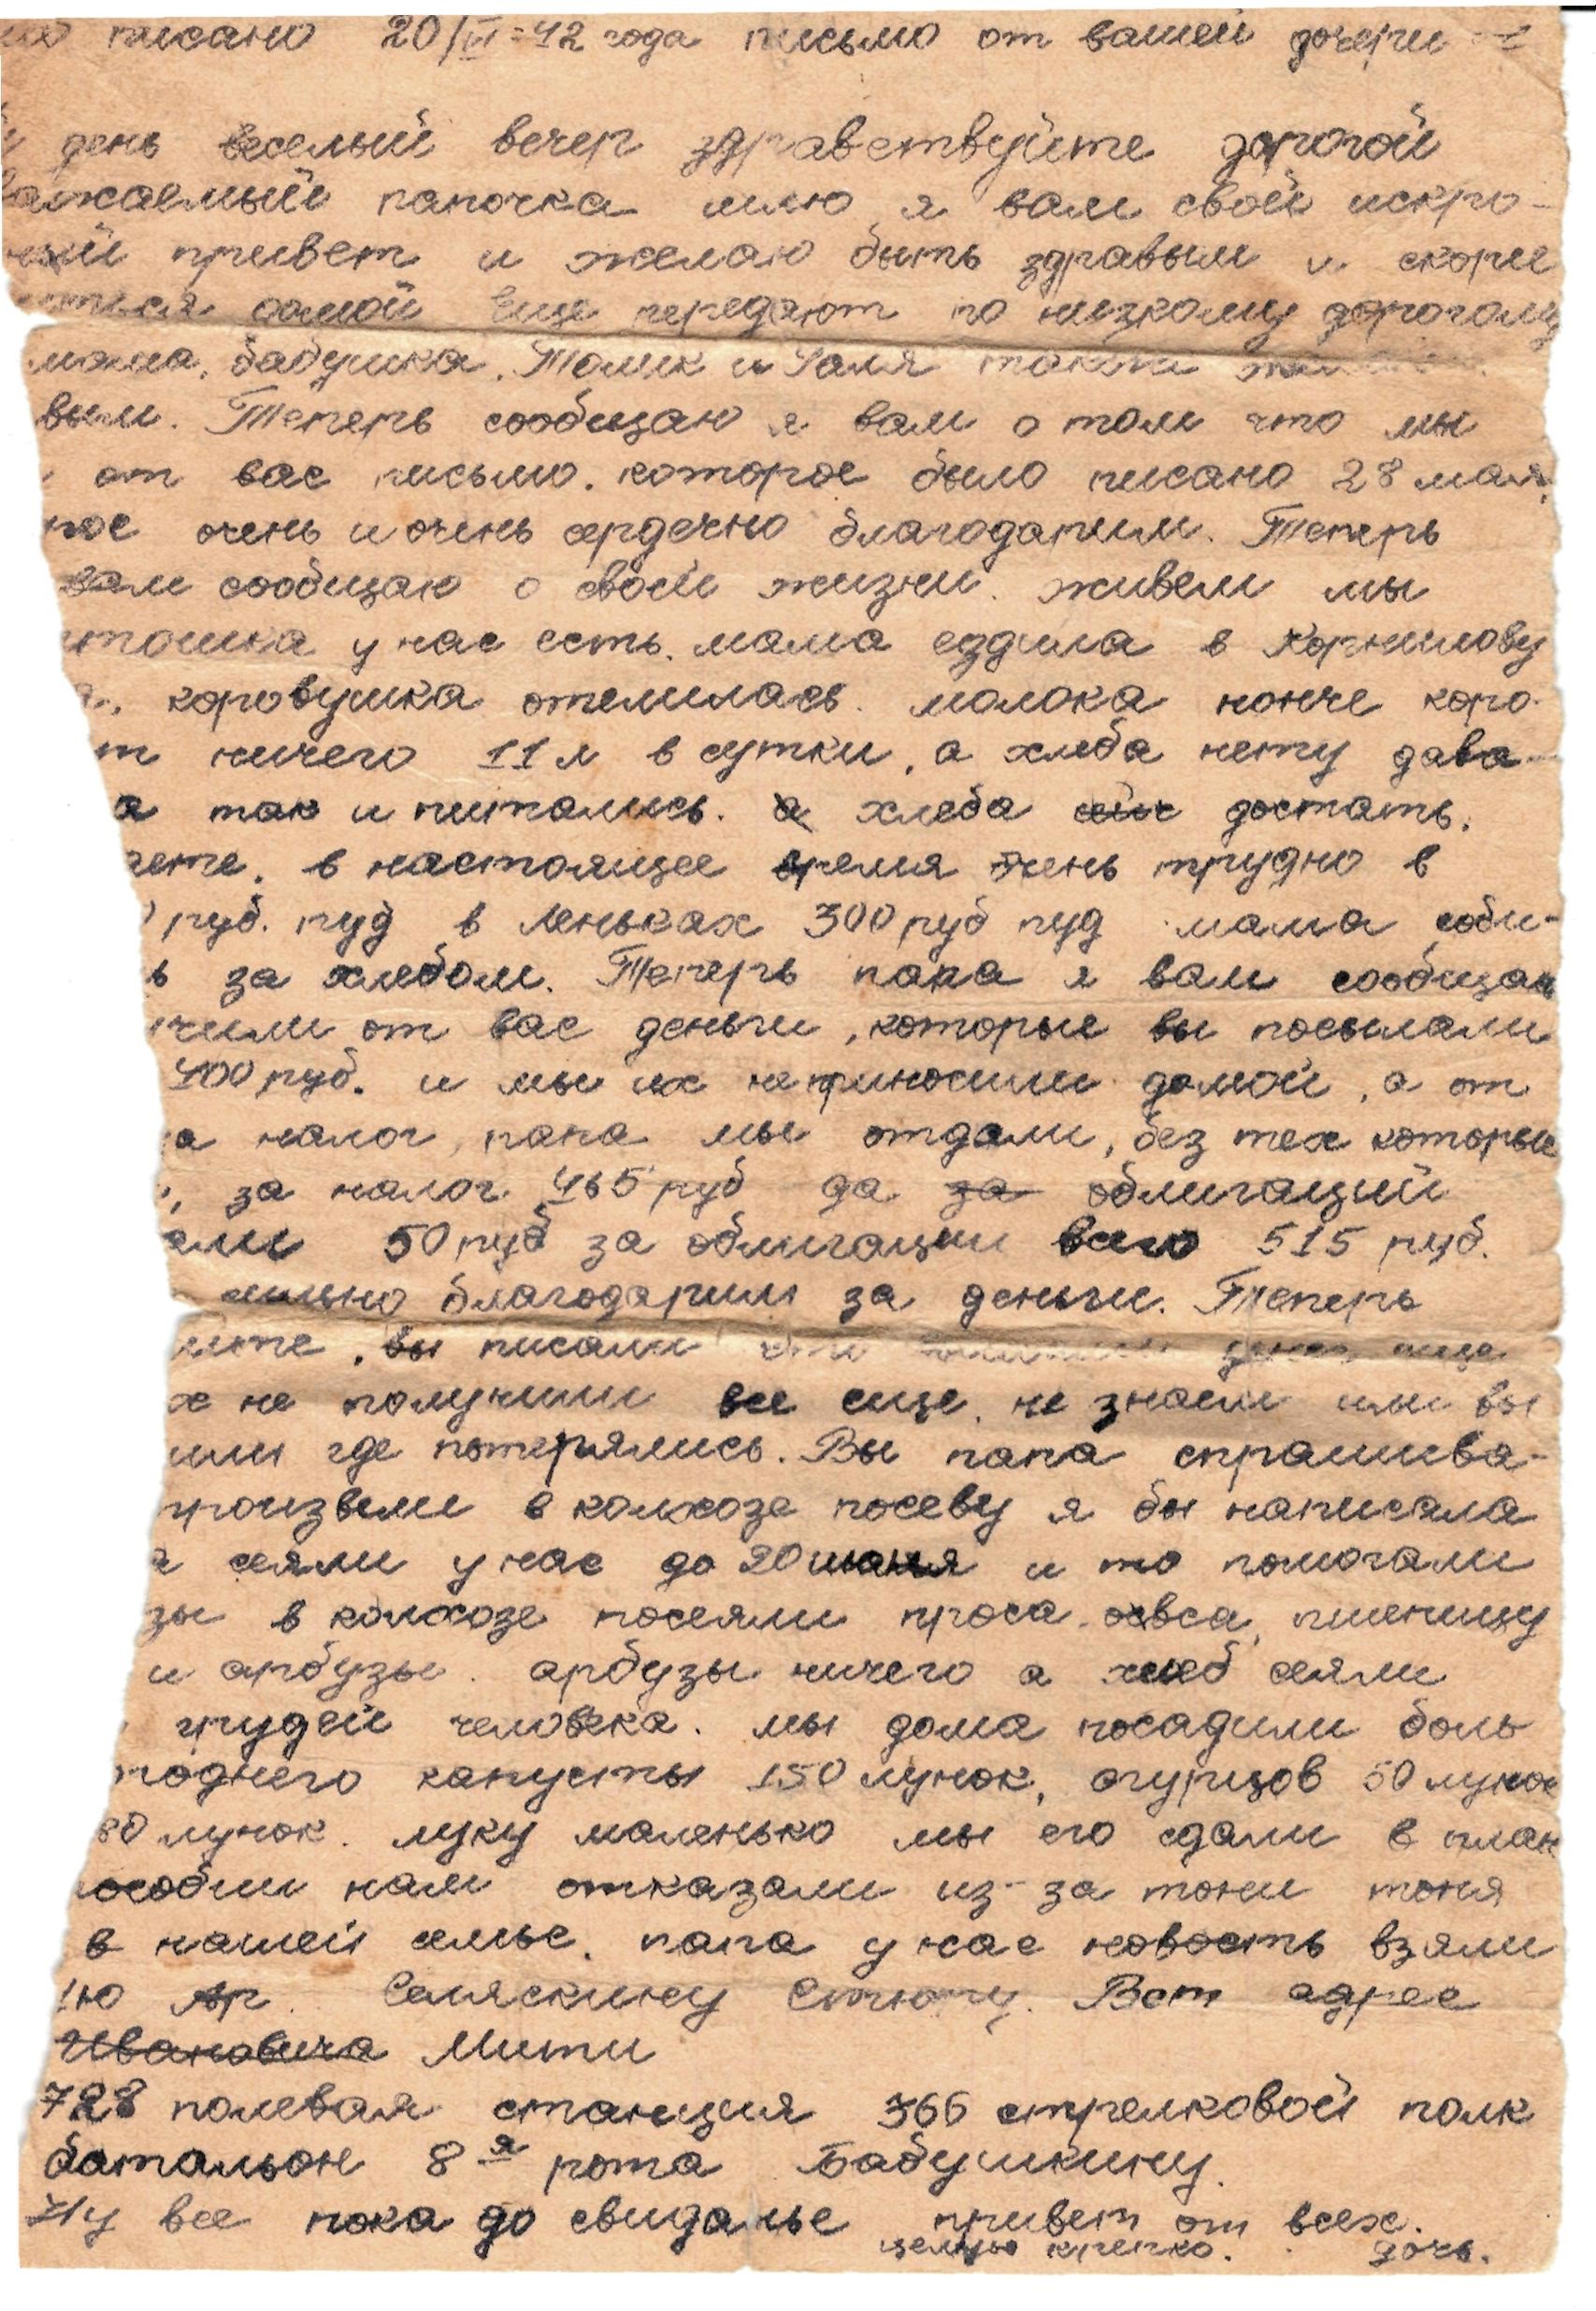 писано 20/VI-42 года письмо от вашей дочери
день веселый вечер здравствуйте дорогой
важаемый папочка шлю я вам свой искре-
ний привет и желаю быть здравым и скоре
домой Еще передают по низкому дорогому
мама, бабушка, Толик и Галя также
вым. Теперь сообщаю я вам о том что мы
от вас письмо. которое было писано 28 мая,
рое очень и очень сердечно благодарим. Теперь
вам сообщаю о своей жизни. живем мы
ртошка у нас есть. мама ездила в Корнилову
коровушка отелилась. молока нонче коро-
т ничего 11 л в сутки, а хлеба нету дава-
а так и питались. а хлеба достать.
аете. в настоящее время очень трудно в
0 руб. пуд в Леньках 300 руб пуд мама соби-
ь за хлебом. Теперь папа я вам сообщаю
чили от вас деньги, которые вы посылали
400 руб. и мы их неприносили домой, а от
а налог, папа мы отдали, без тех которые
, за налог 465 руб да за облигаций
али 50 руб за облигации всего 515 руб.
благодарим за деньги. Теперь
, вы писали
х не получили все еще. не знаем или вы
или где потерялись. Вы папа спрашива-
произвели в колхозе посеву я бы написала
а сеяли у нас до 20 июня и то помогали
зы в колхозе посеяли проса овса, пшеницу
и арбузы. арбузы ничего а хлеб сеяли
грудей человека. мы дома посадили боль
годнего капусты 150 лунок, огурцов 50 лунок
80 лунок. луку маленько мы его сдали в план
пособии нам отказали из-за тони тоня
в нашей семье. папа у нас новость взяли
ию Ар. Селяскину Вот адрес
Ивановича Мити
728 полевая станция 366 стрелковой полк
батальон 8 я рота Бабушкину.
Ну все пока до свиданье привет от всех.
целую крепко. дочь.